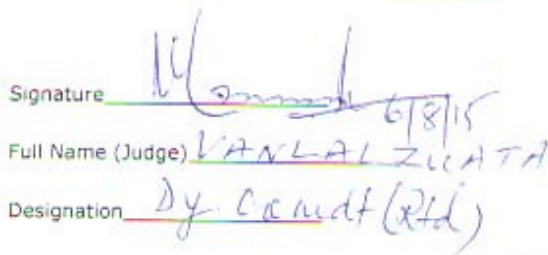 Signature
6/8/15
Full Name (Judge) VANLALZUATA
Designation Dy. Comdt (Rtd)